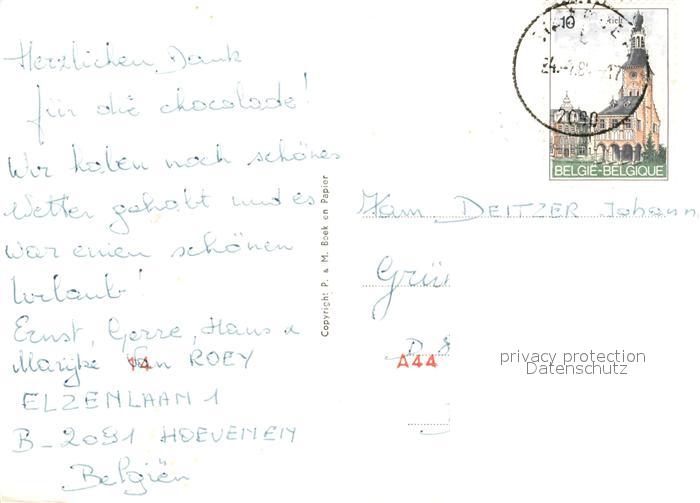 Herzlichen Dank
für die chocolade!
Wir haben noch schönes
Wetter gehabt und es
war einen schönen
Urlaub!
Ernst, Gerre, Hans u
Marijke Van ROEY
14
ELZENLAAN 1
B-2091 HOEVENEN
Belgiën
Copyright P. & M. Boek en Papier
10
24.-7.84 -17
2090
BELGIE-BELGIQUE
Ham DEITZER Johann
Grü
D 8
A44
privacy protection
Datenschutz